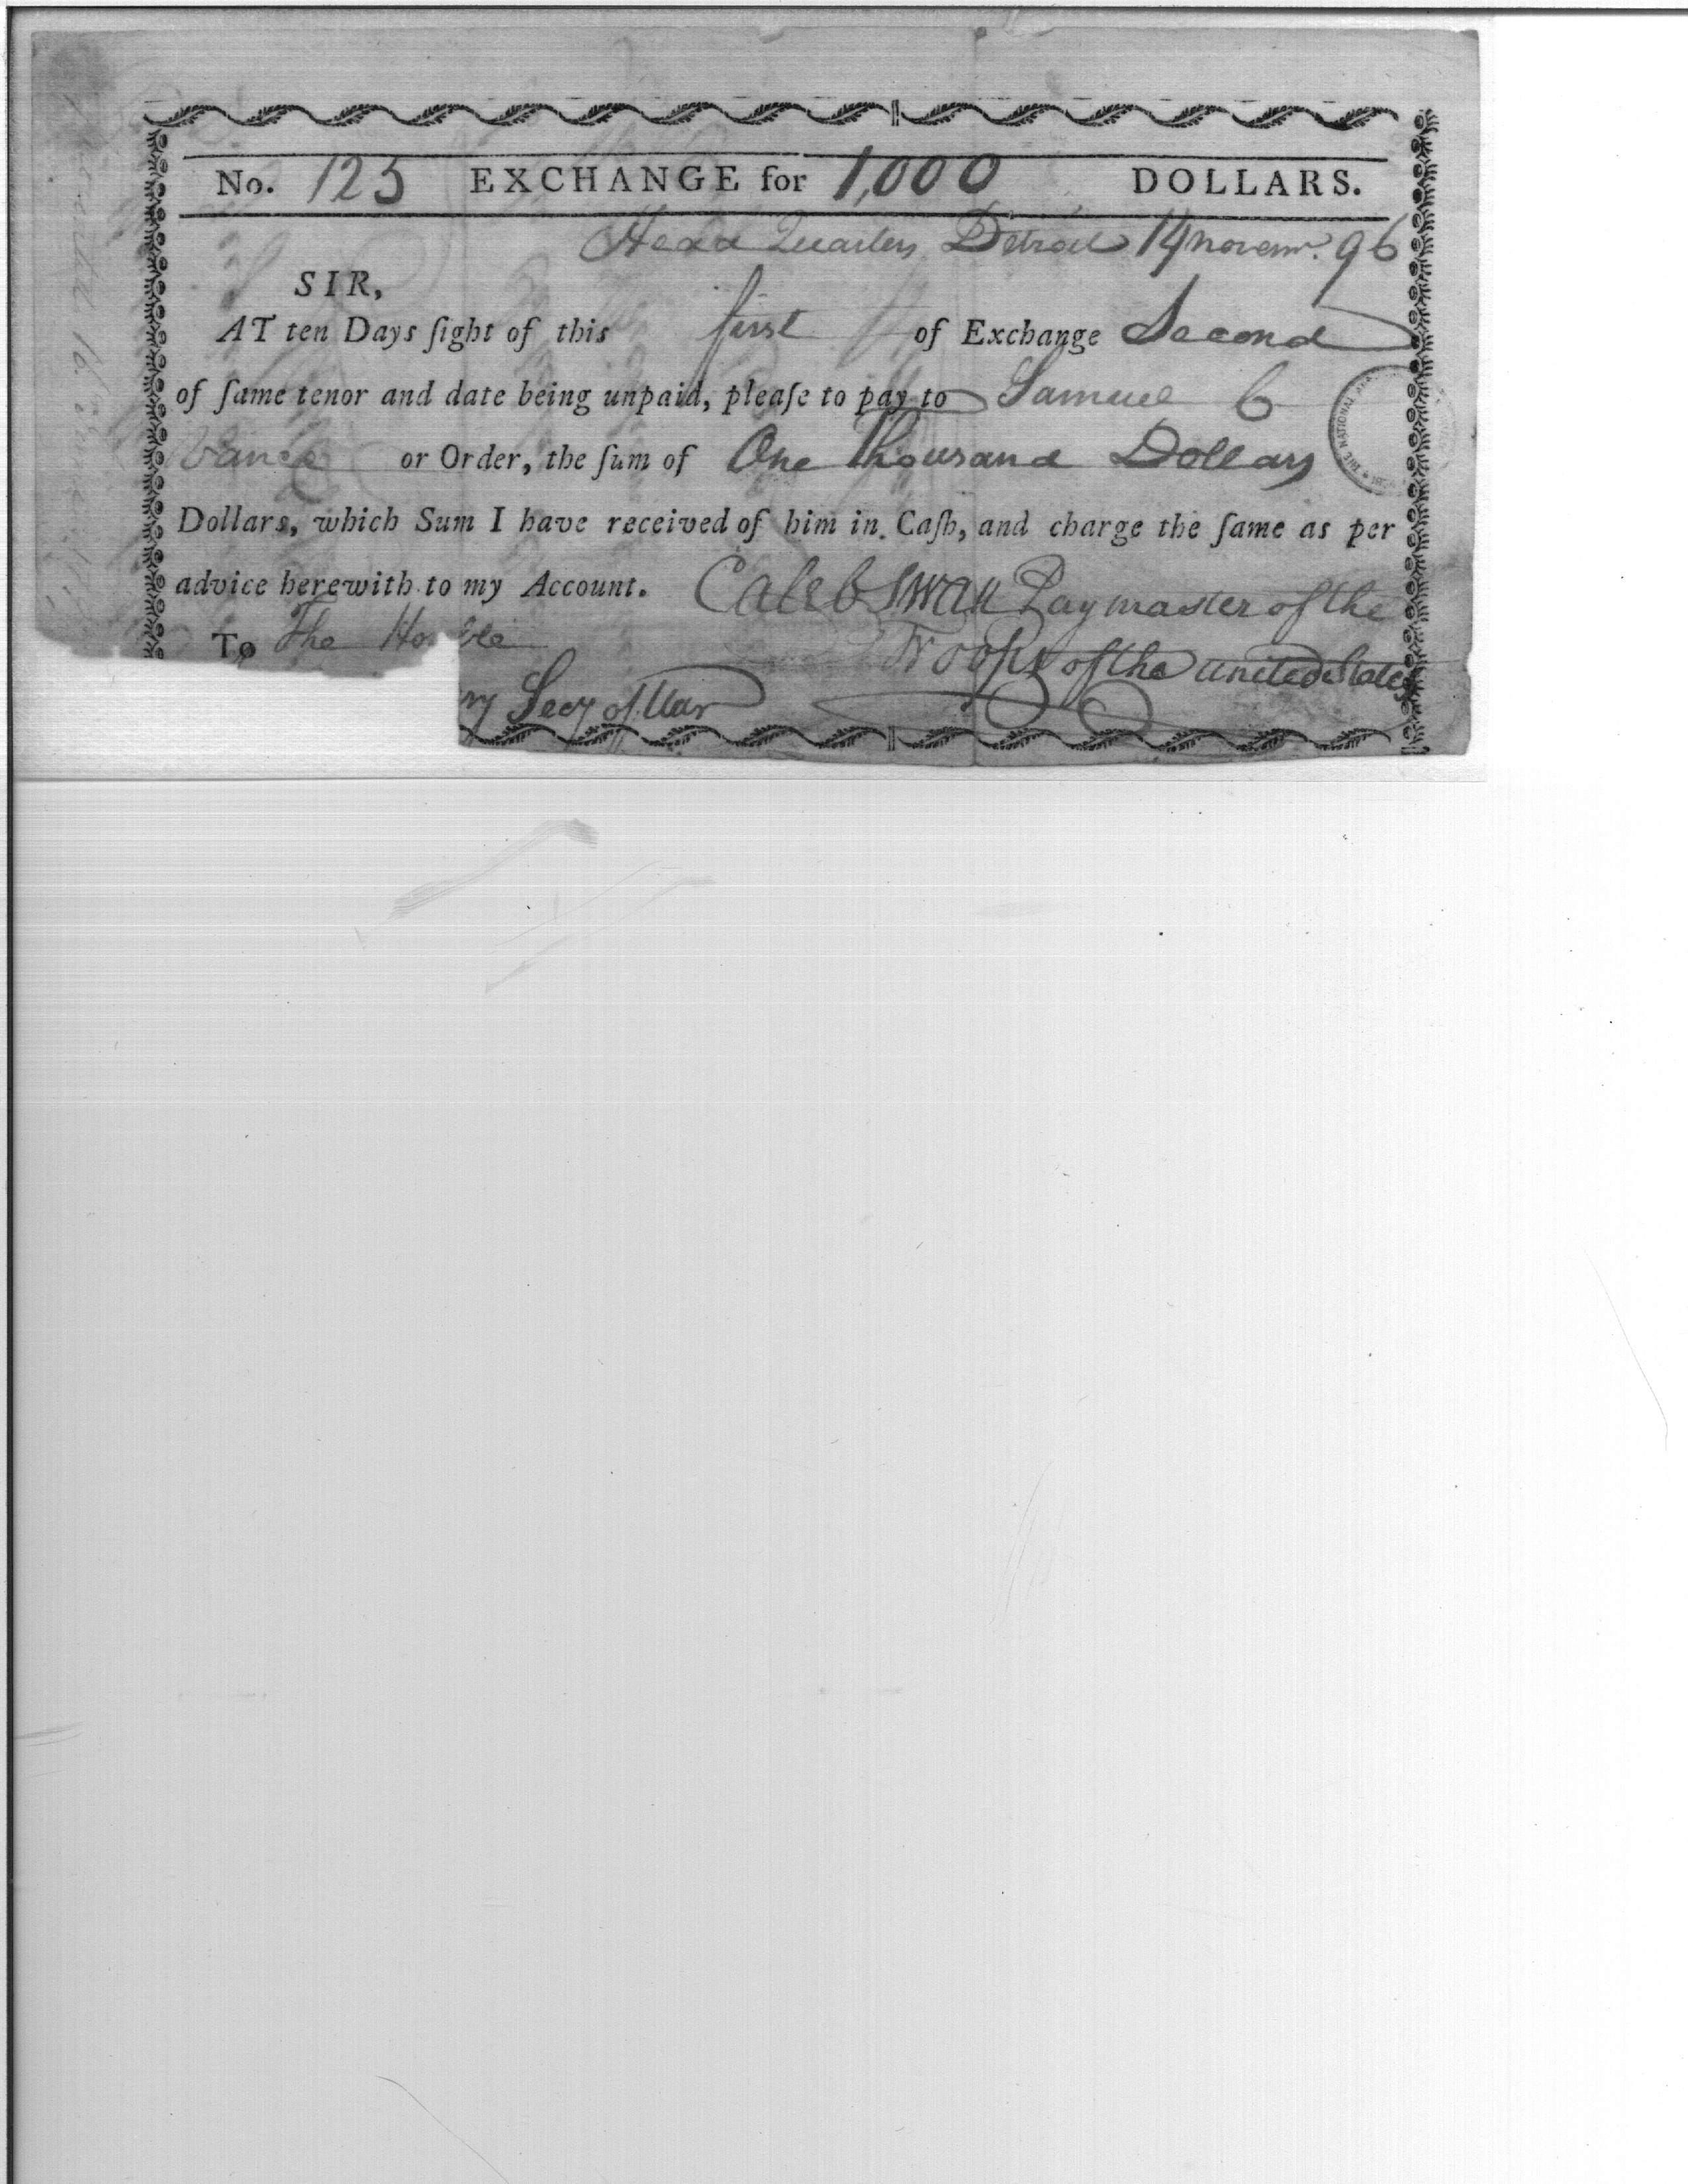 No. 125 EXCHANGE for 1,000 DOLLARS.
Head Quarters Detroit 14 Novemr. 96
SIR,
AT ten Days ſight of this first of Exchange Second
of ſame tenor and date being unpaid, pleaſe to pay to Samuel C
Vance or Order, the ſum of One Thousand Dollars
Dollars, which Sum I have received of him in Caſh, and charge the ſame as per
advice herewith to my Account. Caleb Swan Paymaster of the
Troops of the United States
To The Honble
ry Secy of War
THE NATIONAL